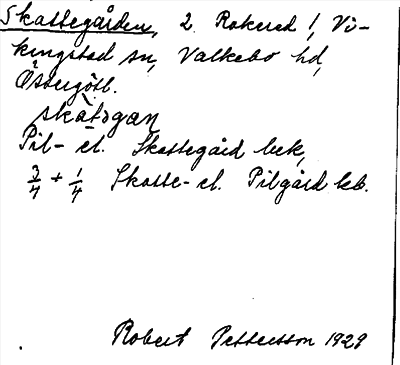 Skattegården, 2 Rakered !, Vi-
kingstad sn, Valkebo hd,
Östergötl.
skàtəgan
Pil- el. Skattegård bek,
3/4 + 1/4 Skatte- el. Pilgård leb.
Robert Pettersson 1929